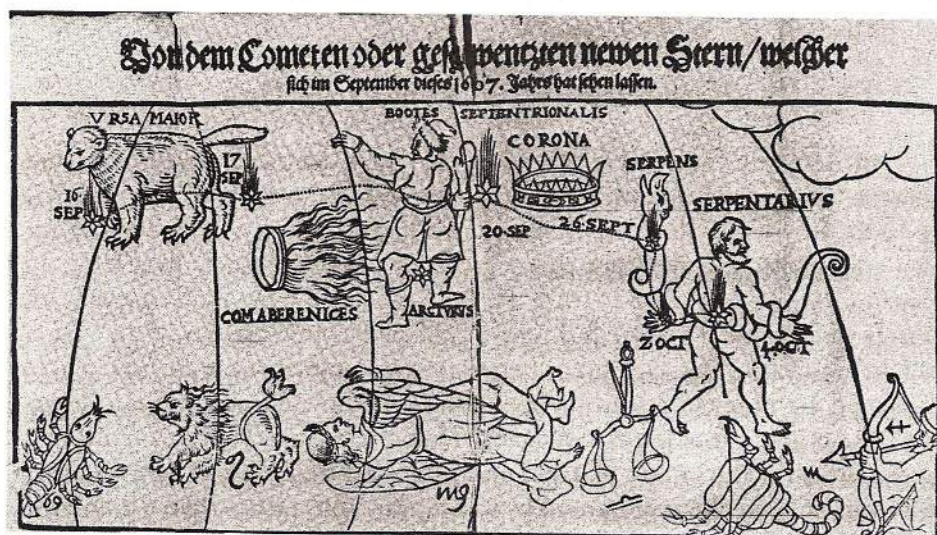 Von dem Cometen oder geschwentzten newen Stern/welcher
sich im September dieses 1607. Jahrs hat sehen lassen.
VRSA MAIOR
BOOTES SEPTENTRIONALIS
CORONA
SERPENS
SERPENTARIVS
16
SEP
17
SEP
20·SEP
26·SEPT
COMABERENICES
ARCTVRVS
2 OCT
4·OCT